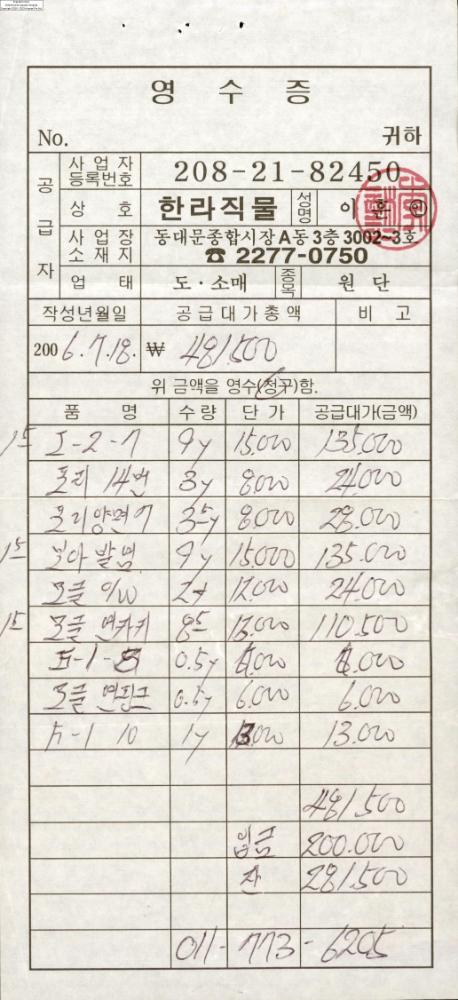 영 수 증
No. 귀하
공급자
사업자등록번호 208-21-82450
상 호 한라직물 성명 이 훈 ㊞
사업장소재지 동대문종합시장 A동 3층 3002~3호
☎ 2277-0750
업 태 도·소매 종목 원 단
작성년월일 공급대가총액 비 고
2006.7.18. ₩ 481,500
위 금액을 영수(청구)함.
품 명 수량 단 가 공급대가(금액)
I-2-7 9y 15,000 135,000
14번 3y 8,000 24,000
3.5y 8,000 28,000
9y 15,000 135,000
12,000 24,000
85 13,000 110,500
0.5y 6,000
0.5y 6,000 6,000
10 1y 13,000 13,000
481,500
입금 200,000
잔 281,500
011-773-6205